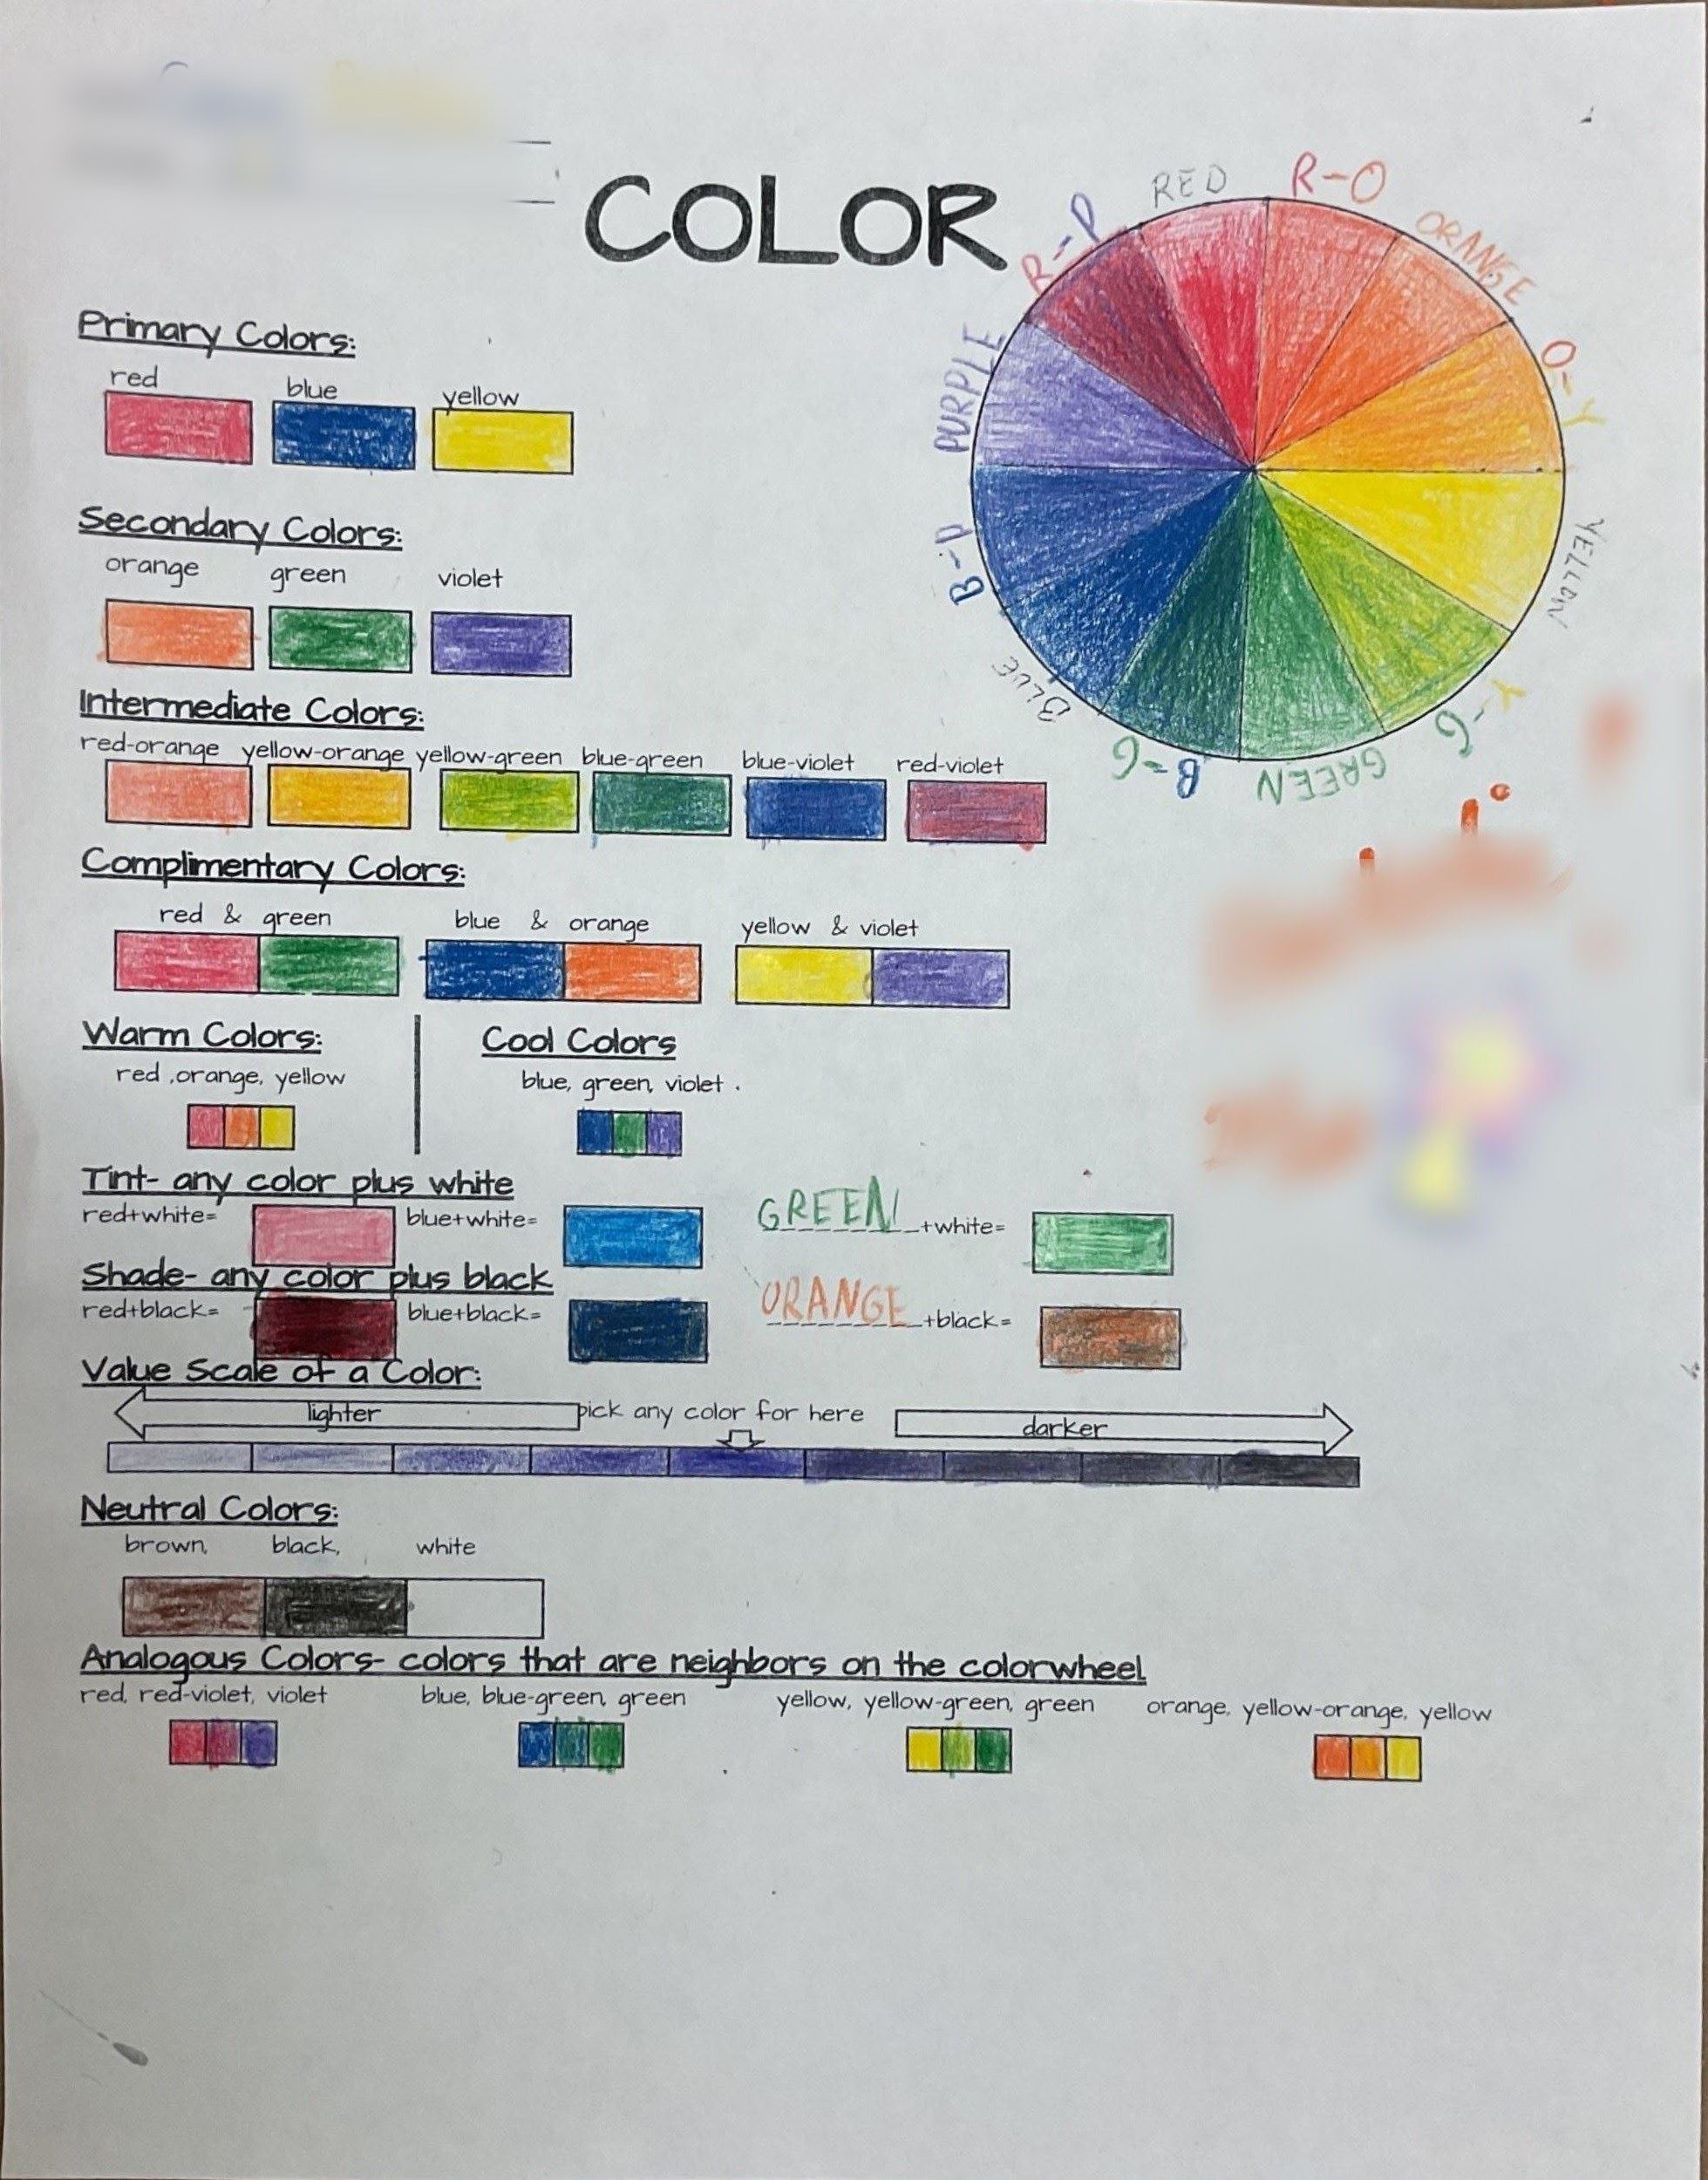 COLOR
RED
R-O
ORANGE
O-Y
YELLOW
Y-G
GREEN
B-G
BLUE
B-P
PURPLE
R-P
Primary Colors:
red blue yellow
Secondary Colors:
orange green violet
Intermediate Colors:
red-orange yellow-orange yellow-green blue-green blue-violet red-violet
Complimentary Colors:
red & green blue & orange yellow & violet
Warm Colors: Cool Colors
red ,orange, yellow blue, green, violet .
Tint- any color plus white
red+white= blue+white= GREEN +white=
Shade- any color plus black
red+black= blue+black= ORANGE +black=
Value Scale of a Color:
lighter pick any color for here darker
Neutral Colors:
brown, black, white
Analogous Colors- colors that are neighbors on the colorwheel
red, red-violet, violet blue, blue-green, green yellow, yellow-green, green orange, yellow-orange, yellow